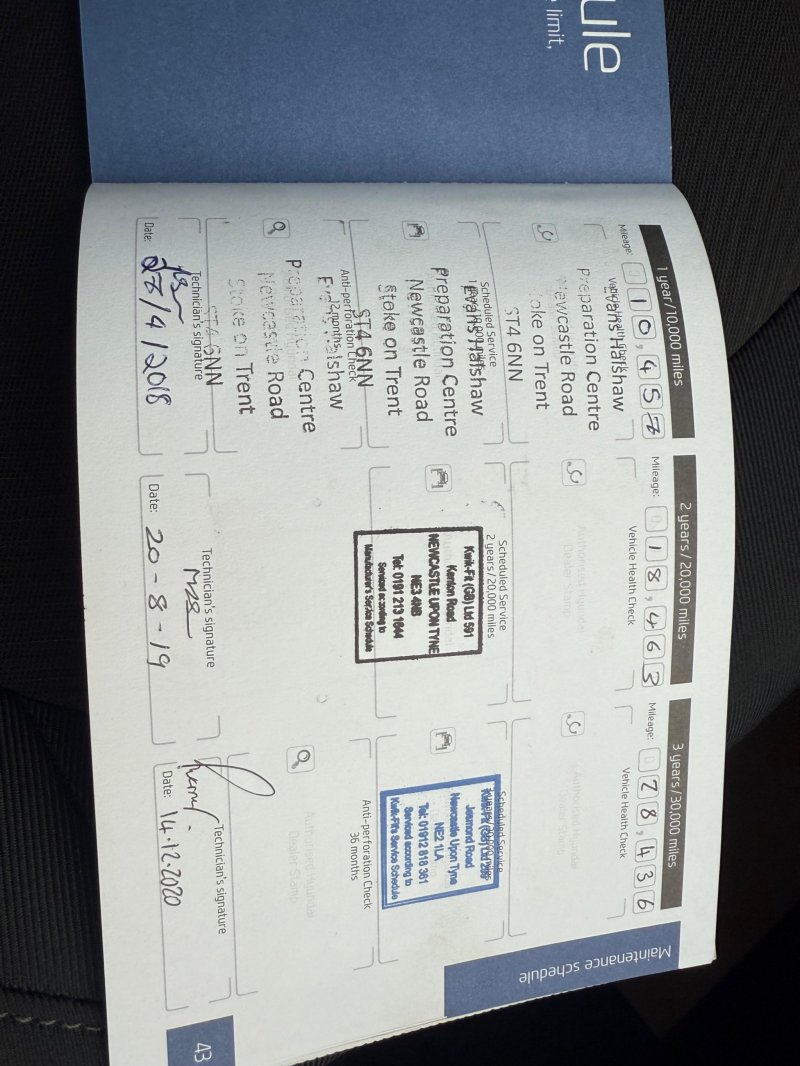 ule
limit,
Maintenance schedule
1 year/10,000 miles
Mileage:
10,457
Vehicle Health Check
Evans Halshaw
Preparation Centre
Newcastle Road
Stoke on Trent
ST4 6NN
Scheduled Service
Evans Halshaw
Preparation Centre
Newcastle Road
Stoke on Trent
ST4 6NN
Anti-perforation Check
12 months
Evans Halshaw
Preparation Centre
Newcastle Road
Stoke on Trent
ST4 6NN
Technician's signature
Date: 27/4/2018
2 years/20,000 miles
Mileage:
18,463
Vehicle Health Check
Scheduled Service
2 years/20,000 miles
Kwik-Fit (GB) Ltd 591
Kenton Road
NEWCASTLE UPON TYNE
NE3 4NB
Tel: 0191 213 1644
Serviced according to
Manufacturer's Service Schedule
Technician's signature
Date: 20-8-19
3 years/30,000 miles
Mileage:
28,436
Vehicle Health Check
Scheduled Service
Jesmond Road
Newcastle Upon Tyne
NE2 1LA
Tel: 01912 818 361
Serviced according to
Kwik-Fit's Service Schedule
Anti-perforation Check
36 months
Technician's signature
Date: 14.12.2020
43